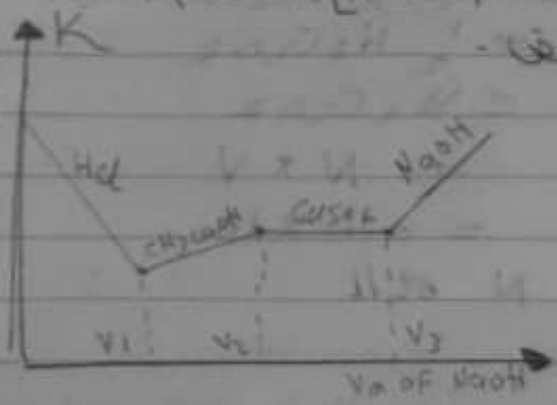 K
HCl
CH3COOH
CuSO4
NaOH
V1
V2
V3
Vm of NaOH